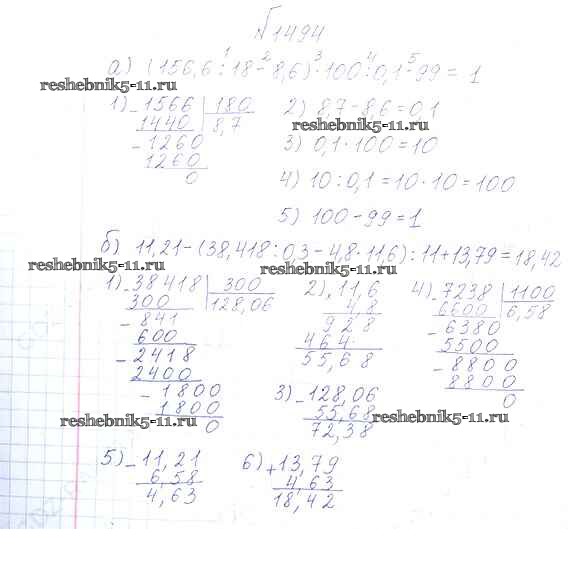 №1494
1 2 3 4 5
а) (156,6 : 18 - 8,6) · 100 : 0,1 - 99 = 1
reshebnik5-11.ru
1) - 1566 | 180
1440 | 8,7
- 1260
1260
0
2) 8,7 - 8,6 = 0,1
reshebnik5-11.ru
3) 0,1 · 100 = 10
4) 10 : 0,1 = 10 · 10 = 100
5) 100 - 99 = 1
б) 11,21 - (38,418 : 0,3 - 4,8 · 11,6) : 11 + 13,79 = 18,42
reshebnik5-11.ru
reshebnik5-11.ru
1) - 38418 | 300
300 | 128,06
- 841
600
- 2418
2400
- 1800
1800
0
reshebnik5-11.ru
2) 11,6
4,8
928
464
55,68
3) - 128,06
55,68
72,38
4) - 7238 | 1100
6600 | 6,58
- 6380
5500
- 8800
8800
0
reshebnik5-11.ru
5) - 11,21
6,58
4,63
6) + 13,79
4,63
18,42